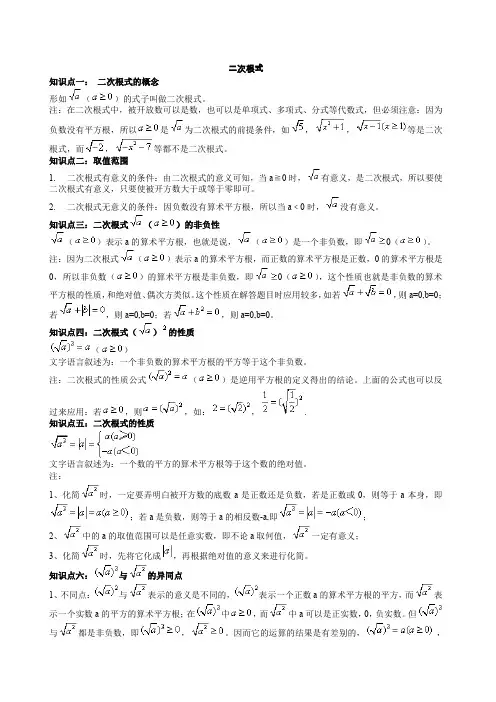 二次根式
知识点一： 二次根式的概念
形如√a（a≥0）的式子叫做二次根式。
注：在二次根式中，被开放数可以是数，也可以是单项式、多项式、分式等代数式，但必须注意：因为
负数没有平方根，所以a≥0是√a为二次根式的前提条件，如√5，√(x²+1)，√(x-1)(x≥1)等是二次
根式，而√-2，√(-x²-7)等都不是二次根式。
知识点二：取值范围
1. 二次根式有意义的条件：由二次根式的意义可知，当a≧0时，√a有意义，是二次根式，所以要使
二次根式有意义，只要使被开方数大于或等于零即可。
2. 二次根式无意义的条件：因负数没有算术平方根，所以当a﹤0时，√a没有意义。
知识点三：二次根式√a（a≥0）的非负性
√a（a≥0）表示a的算术平方根，也就是说，√a（a≥0）是一个非负数，即√a≥0（a≥0）。
注：因为二次根式√a（a≥0）表示a的算术平方根，而正数的算术平方根是正数，0的算术平方根是
0，所以非负数（a≥0）的算术平方根是非负数，即√a≥0（a≥0），这个性质也就是非负数的算术
平方根的性质，和绝对值、偶次方类似。这个性质在解答题目时应用较多，如若√a+√b=0，则a=0,b=0；
若√a+|b|=0，则a=0,b=0；若√a+b²=0，则a=0,b=0。
知识点四：二次根式（√a）²的性质
(√a)²=a（a≥0）
文字语言叙述为：一个非负数的算术平方根的平方等于这个非负数。
注：二次根式的性质公式(√a)²=a（a≥0）是逆用平方根的定义得出的结论。上面的公式也可以反
过来应用：若a≥0，则a=(√a)²，如：2=(√2)²，1/2=(√(1/2))².
知识点五：二次根式的性质
√a²=|a|={a(a≥0) -a(a<0)
文字语言叙述为：一个数的平方的算术平方根等于这个数的绝对值。
注：
1、化简√a²时，一定要弄明白被开方数的底数a是正数还是负数，若是正数或0，则等于a本身，即
√a²=|a|=a(a≥0)；若a是负数，则等于a的相反数-a,即√a²=|a|=-a(a<0)；
2、√a²中的a的取值范围可以是任意实数，即不论a取何值，√a²一定有意义；
3、化简√a²时，先将它化成|a|，再根据绝对值的意义来进行化简。
知识点六：(√a)²与√a²的异同点
1、不同点：(√a)²与√a²表示的意义是不同的，(√a)²表示一个正数a的算术平方根的平方，而√a²表
示一个实数a的平方的算术平方根；在(√a)²中a≥0，而√a²中a可以是正实数，0，负实数。但(√a)²
与√a²都是非负数，即(√a)²≥0，√a²≥0。因而它的运算的结果是有差别的，(√a)²=a(a≥0)，